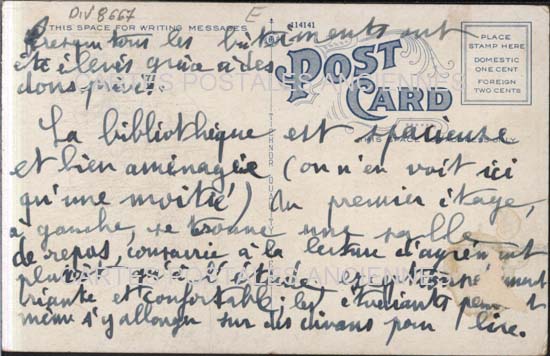 DIV 8667
E
THIS SPACE FOR WRITING MESSAGES
114141
POST CARD
PLACE
STAMP HERE
DOMESTIC
ONE CENT
FOREIGN
TWO CENTS
Presque tous les bâtiments ont
été élevés grâce à des
dons privés.
CARTES POSTALES ANCIENNES
La bibliothèque est spacieuse
et bien aménagée (on n'en voit ici
qu'une moitié) Au premier étage,
à gauche, se trouve une salle
de repos, consacrée à la lecture d'agrément
plus l'étude
et confortable; les étudiants peuvent
même s'y allonger sur des divans pour lire.
CARTES POSTALES ANCIENNES